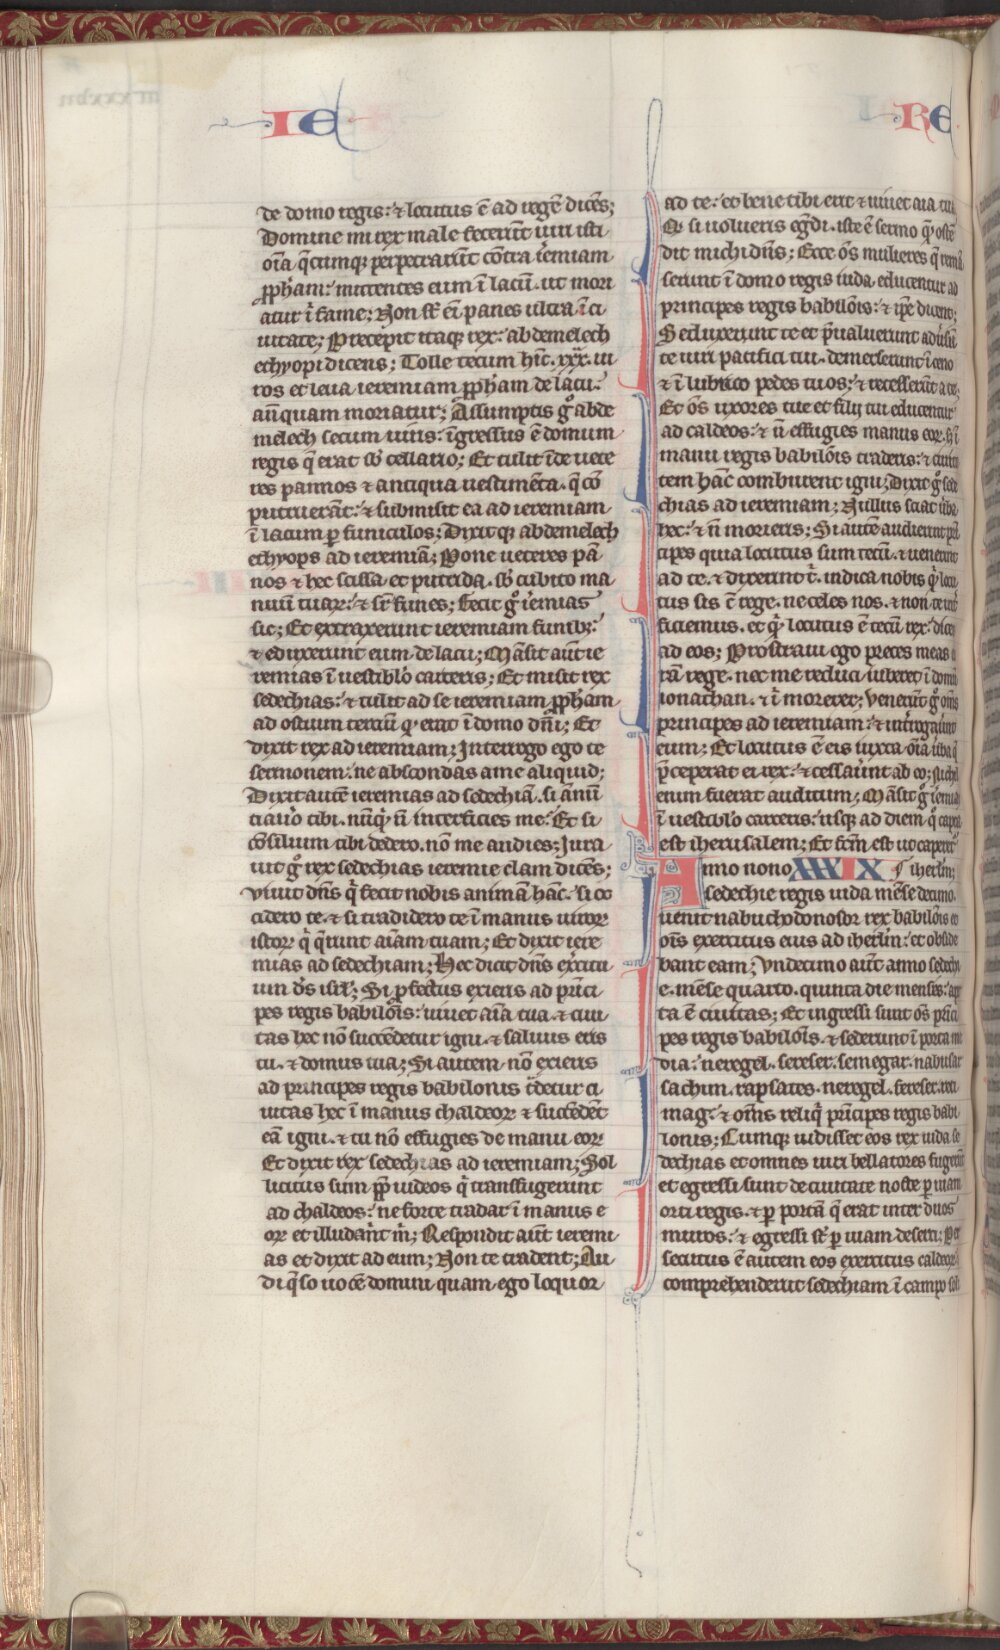 IE
RE
de domo regis: ⁊ locutus ē ad regē dicēs;
Domine mi rex male fecerūt uiri isti
oīa q̄cumq; perpetrarūt cōtra ieremiam
ꝓph̄am: mittentes eum ī lacū. ut mori
atur ī fame; Non sūt eī panes ultra. ī ci
uitate; Precepit itaq; rex: abdemelech
ethyopi dicens; Tolle tecum hīc .xxx. ui
ros et leua ieremiam ꝓph̄am de lacu:
an̄quam moriatur; Assumptis gͦ abde
melech secum uiris: īgressus ē domum
regis q̄ erat sb̄ cellario; Et tulit īde uete
res pannos ⁊ antiqua uestimēta. q̄ cō
putruerāt: ⁊ submisit ea ad ieremiam
ī lacum ꝑ funiculos; Dixitq; abdemelech
ethyops ad ieremiā; Pone ueteres pā
nos ⁊ hec scissa et putrida. sb̄ cubito ma
nuū tuaꝝ: ⁊ sr̄ funes; Fecit gͦ iemias
sic; Et extraxerunt ieremiam funibꝫ:
⁊ eduxerunt eum de lacu; Māsit aūt ie
remias ī uestiblo carceris; Et misit rex
sedechias: ⁊ tulit ad se ieremiam ꝓph̄am
ad ostium terciū qͦ erat ī domo dn̄i; Et
dixit rex ad ieremiam; Interrogo ego te
sermonem: ne abscondas a me aliquid;
Dixit autē ieremias ad sedechiā. si ānū
tiau̾o tibi. nūqͥ n̄ interficies me: Et si
cōsilium tibi dedero. nō me audies; Iura
uit gͦ rex sedechias ieremie clam dicēs;
Viuit dn̄s qͥ fecit nobis animā hāc. si oc
cidero te. ⁊ si tradidero te ī manus uiroꝝ
istoꝝ qͥ q̄runt aīam tuam; Et dixit iere
mias ad sedechiam; Hec dicit dn̄s ex̾citu
um ds̄ isrl̄; Si ꝓfectus exieris ad prīci
pes regis babilōis: uiuet aīa tua. ⁊ ciui
tas hec nō succēdetur igni. ⁊ saluus eris
tu. ⁊ domus tua; Si autem nō exieris
ad principes regis babilonis t̾detur ci
uitas hec ī manus chaldeoꝝ ⁊ succēdēt
eā igni. ⁊ tu nō effugies de manu eoꝝ
Et dixit rex sedechias ad ieremiam; Sol
licitus sum ꝓp̄ iudeos qͥ transfugerunt
ad chaldeos: ne forte tradar ī manus e
oꝝ et illudāt m̄; Respondit aūt ieremi
as et dixit ad eum; Non te tradent; Au
di q̄so uocē domini quam ego loquor
ad te: et bene tibi erit ⁊ uiuet aīa tua
Qd̄ si uolueris eg̃di. iste ē sermo qͦ ostē
dit michi dn̄s; Ecce ōs mulieres q̄ remā
serunt ī domo regis iuda educentur ad
principes regis babilōis: ⁊ ip̄e dicent;
Seduxerunt te et p̄ualuerunt adu̾sū
te uiri pacifici tui. demerserunt ī ceno
⁊ ī lubrico pedes tuos: ⁊ recesserūt a te;
Et ōs uxores tue et filij tui educentur
ad caldeos: ⁊ n̄ effugies manus eoꝝ. sꝫ ī
manu regis babilōis traderis: ⁊ ciuita
tem hāc comburent igni; Dixit gͦ sede
chias ad ieremiam; Nullus sciat u̾ba
hec: ⁊ n̄ morieris; Si autē audierint prī
cipes quia locutus sum tecū. ⁊ uenerint
ad te. ⁊ dixerint t̄. indica nobis qͥ locu
tus sis c̄ rege. ne celes nos. ⁊ non te int̾
ficiemus. et qͥ locutus ē tecū rex: dices
ad eos; Prostraui ego preces meas co
rā rege. nec me reduci iuberet ī domū
ionathan. ⁊ ī morerer; Venerūt gͦ om̄s
principes ad ieremiam: ⁊ int̾rogau̾unt
eum; Et locutus ē eis iuxta oīa u̾ba q̄
p̄ceperat ei rex: ⁊ cessau̾unt ab eo; nichil
enim fuerat auditum; Māsit gͦ iemias
ī uestiblo carceris: usq; ad diem qͦ capta
est iherusalem; Et fc̄m est ut caperetͬ
Anno nono XXXIX ¶ iherlm̄;
sedechie regis iuda mēse decimo.
uenit nabuchodonosor rex babilōis et
oīs exercitus eius ad iherlm̄: et obside
bant eam; Vndecimo aūt anno sedechi
e. mēse quarto. quinta die mensis: aꝑ
ta ē ciuitas; Et ingressi sunt ōs prīci
pes regis babilōis. ⁊ sederunt ī porta me
dia: neregel. sereser. semegar. nabusar
sachim. rapsates. neregel. sereser. reb
mag: ⁊ om̄s reliqͥ prīcipes regis babi
lonis; Cumq; uidisset eos rex iuda se
dechias et omnes uiri bellatores fugerūt
et egressi sunt de ciuitate nocte ꝑ uiam
orti regis. ⁊ ꝑ portā q̄ erat inter duos
muros: ⁊ egressi sūt ꝑ uiam deserti; Per
secutus ē autem eos exercitus caldeoꝝ:
comprehenderūt sedechiam ī campo soli